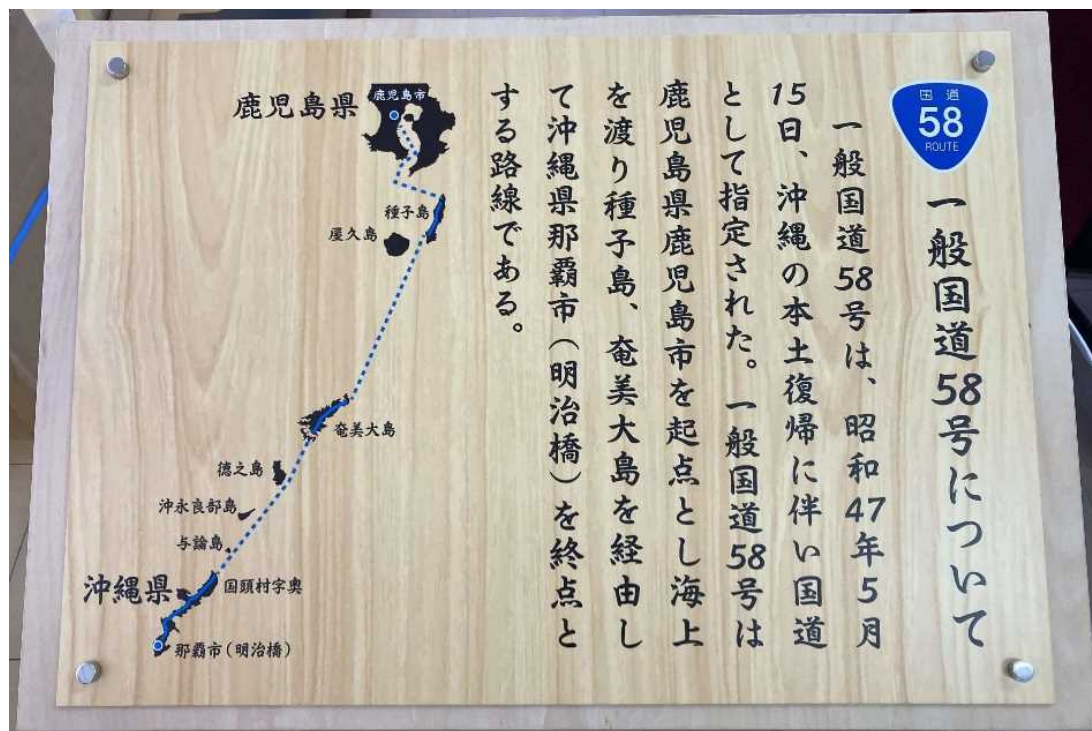 国道
58
ROUTE
一般国道58号について
一般国道58号は、昭和47年5月
15日、沖縄の本土復帰に伴い国道
として指定された。一般国道58号は
鹿児島県鹿児島市を起点とし海上
を渡り種子島、奄美大島を経由し
て沖縄県那覇市(明治橋)を終点と
する路線である。
鹿児島県
鹿児島市
種子島
屋久島
奄美大島
徳之島
沖永良部島
与論島
沖縄県
国頭村字奥
那覇市(明治橋)